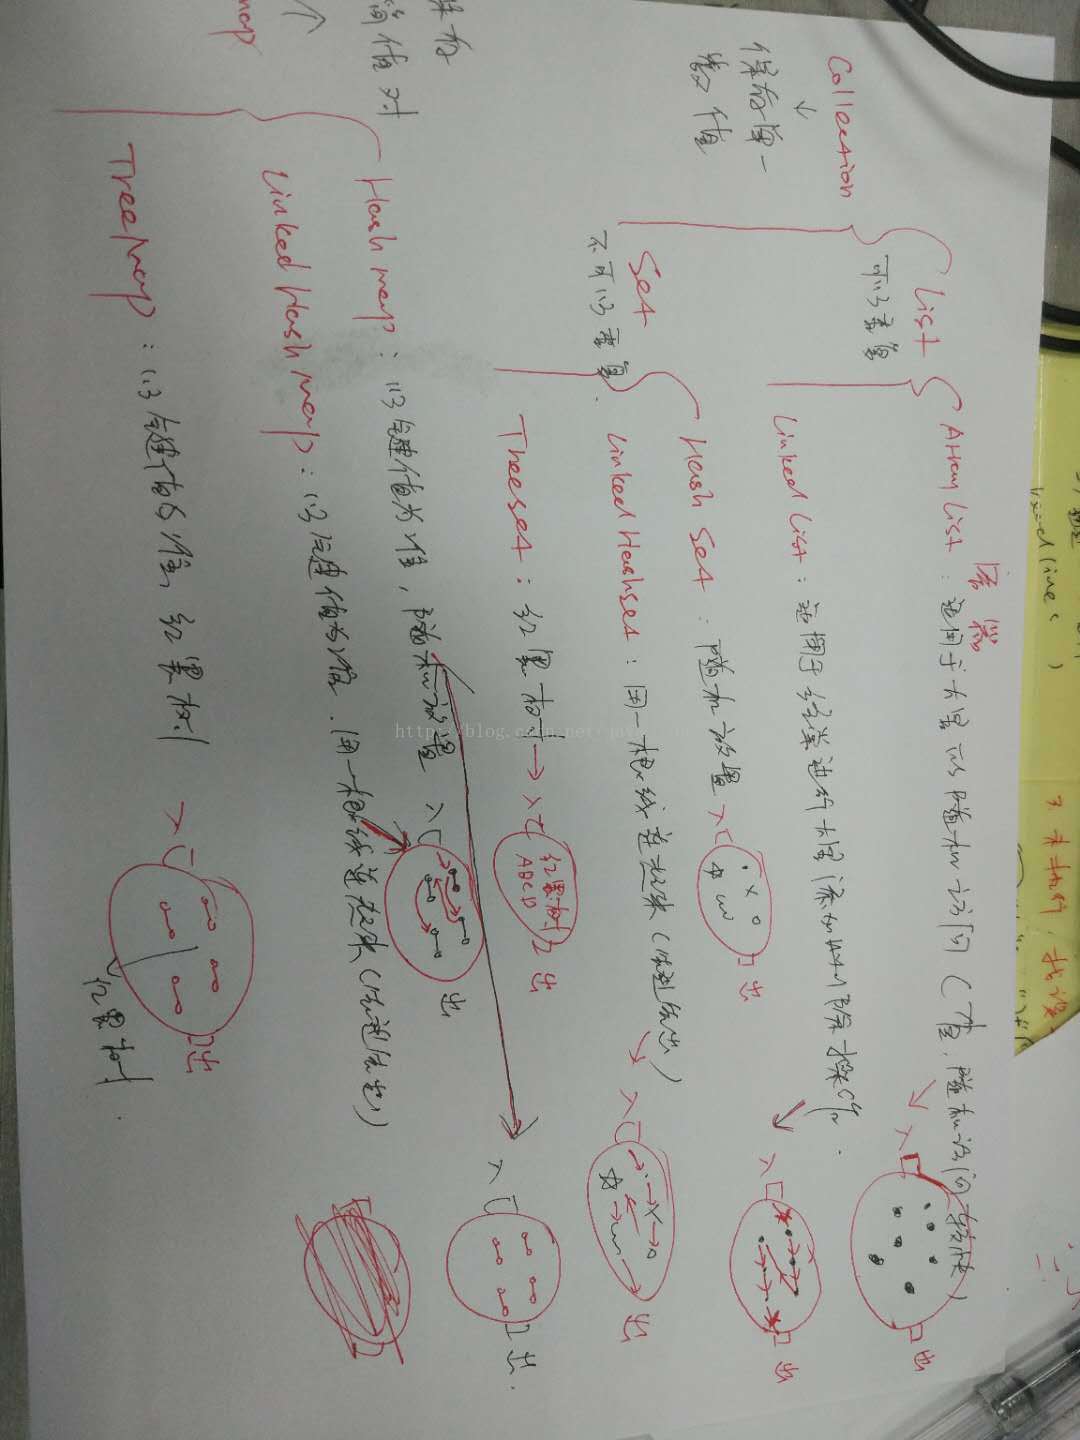 Collection
↓
保存单一
数值
List
可以重复
容器
ArrayList：适用于大量的随机访问（查，随机访问较快）
入
出
LinkedList：适用于经常进行大量添加和删除操作.
入
出
Set
不可以重复.
HashSet：随机放置
入
出
LinkedHashset：用一根线连起来（先进先出）
入
出
Treeset：红黑树→入
红黑树
ABCD
出
map
↑
保存
键值对
Hashmap：以键值为准，随机放置
入
出
入
出.
LinkedHashmap：以键值为准.用一根线连起来（先进先出）
TreeMap：以键值为准，红黑树
入
出
红黑树.
http://blog.